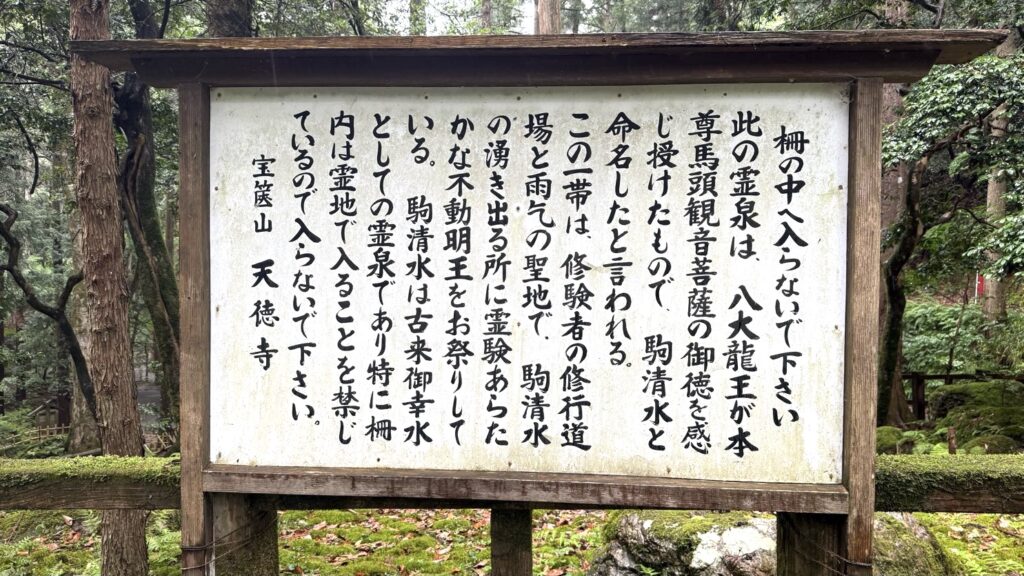 柵の中へ入らないで下さい
此の霊泉は、八大龍王が本
尊馬頭観音菩薩の御徳を感
じ授けたもので、駒清水と
命名したと言われる。
この一帯は、修験者の修行道
場と雨乞の聖地で、駒清水
の湧き出る所に霊験あらた
かな不動明王をお祭りして
いる。駒清水は古来御幸水
としての霊泉であり特に柵
内は霊地で入ることを禁じ
ているので入らないで下さい。
宝篋山 天徳寺